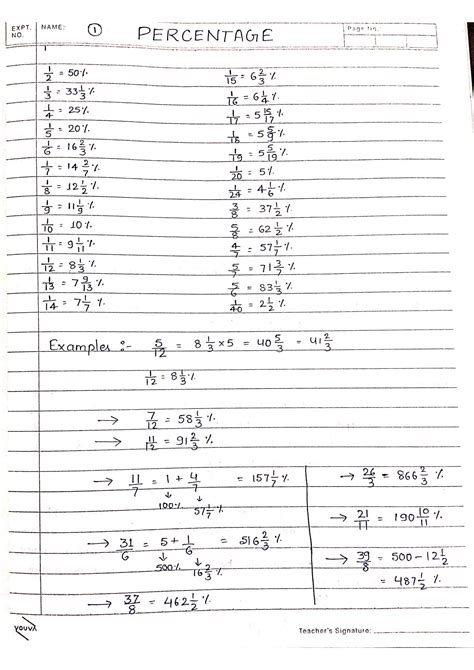 EXPT. NO.
NAME:
1
PERCENTAGE
Page No.
1
1/2 = 50%
1/3 = 33 1/3 %
1/4 = 25%
1/5 = 20%
1/6 = 16 2/3 %
1/7 = 14 2/7 %
1/8 = 12 1/2 %
1/9 = 11 1/9 %
1/10 = 10%
1/11 = 9 1/11 %
1/12 = 8 1/3 %
1/13 = 7 9/13 %
1/14 = 7 1/7 %
1/15 = 6 2/3 %
1/16 = 6 1/4 %
1/17 = 5 15/17 %
1/18 = 5 5/9 %
1/19 = 5 5/19 %
1/20 = 5%
1/24 = 4 1/6 %
3/8 = 37 1/2 %
5/8 = 62 1/2 %
4/7 = 57 1/7 %
5/7 = 71 3/7 %
5/6 = 83 1/3 %
1/40 = 2 1/2 %
Examples :- 5/12 = 8 1/3 × 5 = 40 5/3 = 41 2/3
1/12 = 8 1/3 %
→ 7/12 = 58 1/3 %
→ 11/12 = 91 2/3 %
→ 11/7 = 1 + 4/7 = 157 1/7 %
↓ ↓
100% 57 1/7 %
→ 31/6 = 5 + 1/6 = 516 2/3 %
↓ ↓
500% 16 2/3 %
→ 37/8 = 462 1/2 %
→ 26/3 = 866 2/3 %
→ 21/11 = 190 10/11 %
→ 39/8 = 500 - 12 1/2
= 487 1/2 %
youva
Teacher's Signature: